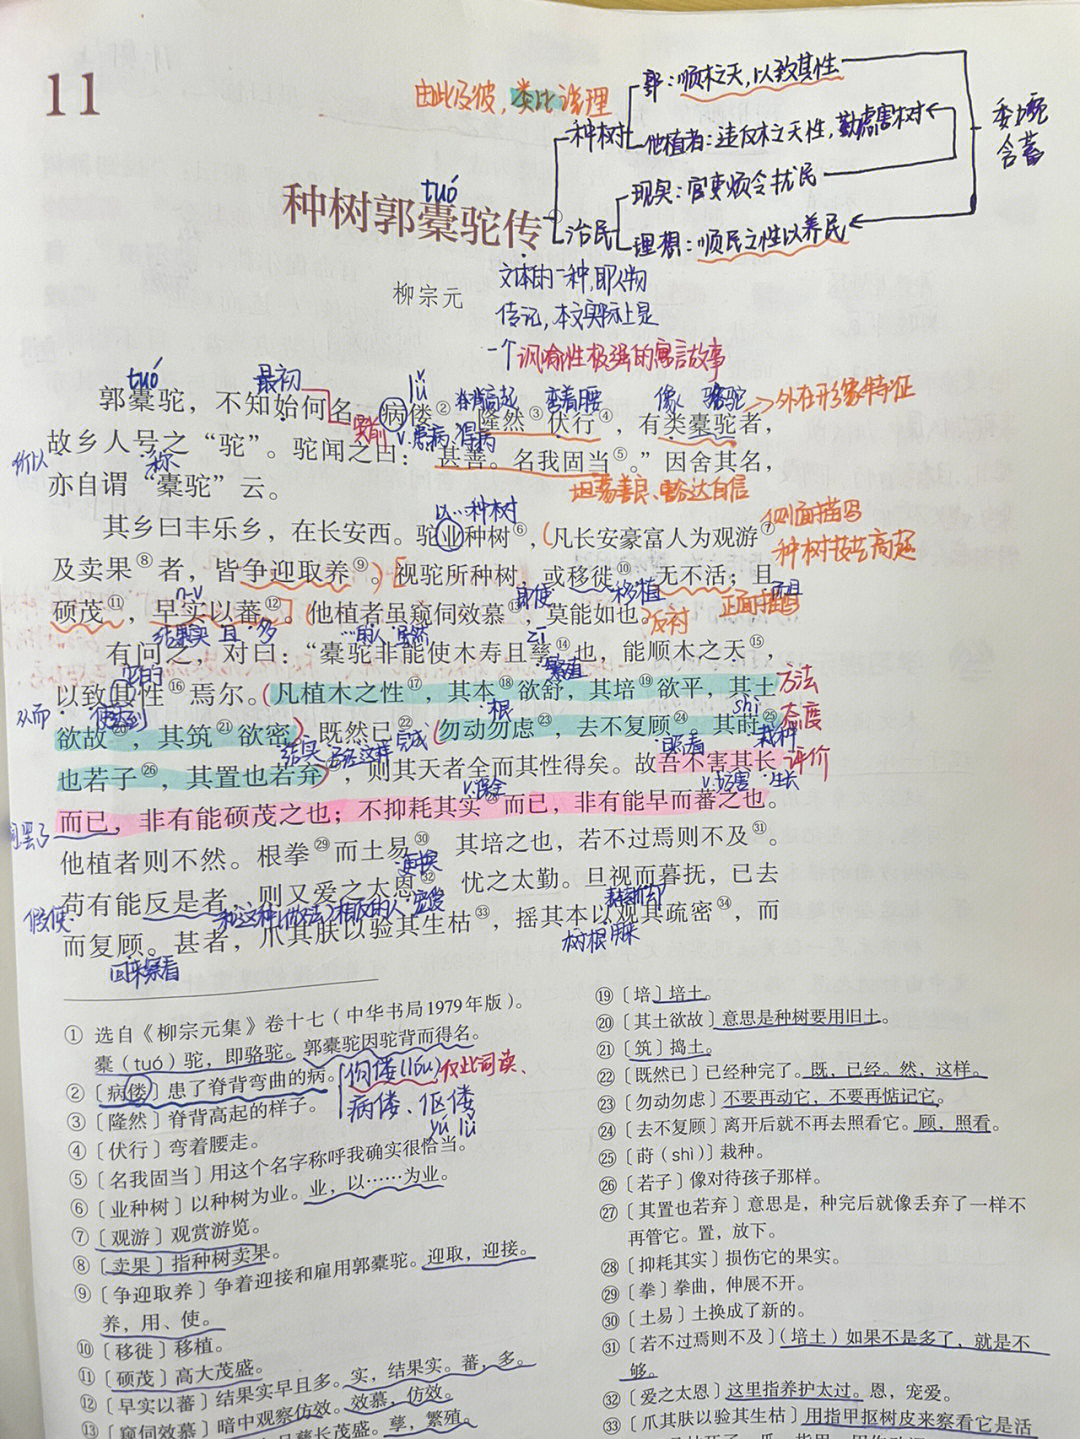 11
由此及彼，类比说理
种树
郭：顺木之天，以致其性
他植者：违反木之天性，勤虑害树
治民
现实：官吏烦令扰民
理想：顺民之性以养民
委婉
含蓄
tuó
种树郭橐驼传①
柳宗元
文体的一种，即人物
传记，本文实际上是
一个讽喻性极强的寓言故事
tuó 最初 lǚ 脊背高起 弯着腰 像 骆驼 外在形象特征
郭橐驼，不知始何名。病偻②，隆然③伏行④，有类橐驼者，
v.患病
故乡人号之“驼”。驼闻之曰：“甚善。名我固当⑤。”因舍其名，
所以 称
亦自谓“橐驼”云。
坦荡善良、豁达自信
以…种树 侧面描写
其乡曰丰乐乡，在长安西。驼业种树⑥，凡长安豪富人为观游⑦
种树技艺高超
及卖果⑧者，皆争迎取养⑨。视驼所种树，或移徙⑩，无不活；且
n-v 即使 移植 而且
硕茂⑪，早实以蕃⑫。他植者虽窥伺效慕⑬，莫能如也。
反衬 正面描写
结果实 且 多
有问之，对曰：“橐驼非能使木寿且孳⑭也，能顺木之天⑮，
它的 繁殖
以致其性⑯焉尔。凡植木之性⑰，其本⑱欲舒，其培⑲欲平，其土
方法
从而 使达到 根 shì
欲故⑳，其筑㉑欲密。既然已㉒，勿动勿虑㉓，去不复顾㉔。其莳㉕
态度
已经这样 完成 照看 栽种
也若子㉖，其置也若弃㉗，则其天者全而其性得矣。故吾不害其长
评价
v.保全 v.伤害 生长
而已，非有能硕茂之也；不抑耗其实㉘而已，非有能早而蕃之也。
罢了
他植者则不然。根拳㉙而土易㉚，其培之也，若不过焉则不及㉛。
更换
苟有能反是者，则又爱之太恩㉜，忧之太勤。旦视而暮抚，已去
假使
而复顾。甚者，爪其肤以验其生枯㉝，摇其本以观其疏密㉞，而
回来察看 树根 用来
① 选自《柳宗元集》卷十七（中华书局1979年版）。
橐（tuó）驼，即骆驼。郭橐驼因驼背而得名。
②〔病偻〕患了脊背弯曲的病。
佝偻（lóu）仅此词读、
病偻、伛偻
yǔ lǚ
③〔隆然〕脊背高起的样子。
④〔伏行〕弯着腰走。
⑤〔名我固当〕用这个名字称呼我确实很恰当。
⑥〔业种树〕以种树为业。业，以……为业。
⑦〔观游〕观赏游览。
⑧〔卖果〕指种树卖果。
⑨〔争迎取养〕争着迎接和雇用郭橐驼。迎取，迎接。
养，用、使。
⑩〔移徙〕移植。
⑪〔硕茂〕高大茂盛。
⑫〔早实以蕃〕结果实早且多。实，结果实。蕃，多。
⑬〔窥伺效慕〕暗中观察仿效。效慕，仿效。
⑲〔培〕培土。
⑳〔其土欲故〕意思是种树要用旧土。
㉑〔筑〕捣土。
㉒〔既然已〕已经种完了。既，已经。然，这样。
㉓〔勿动勿虑〕不要再动它，不要再惦记它。
㉔〔去不复顾〕离开后就不再去照看它。顾，照看。
㉕〔莳（shì）〕栽种。
㉖〔若子〕像对待孩子那样。
㉗〔其置也若弃〕意思是，种完后就像丢弃了一样不
再管它。置，放下。
㉘〔抑耗其实〕损伤它的果实。
㉙〔拳〕拳曲，伸展不开。
㉚〔土易〕土换成了新的。
㉛〔若不过焉则不及〕（培土）如果不是多了，就是不
够。
㉜〔爱之太恩〕这里指养护太过。恩，宠爱。
㉝〔爪其肤以验其生枯〕用指甲抠树皮来察看它是活